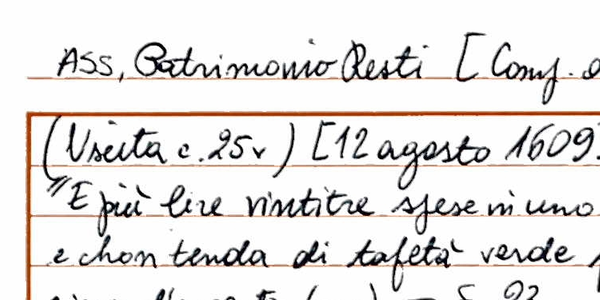 ASS, Patrimonio Resti [Comp.
(Uscita c. 25v) [12 agosto 1609
"E più lire vintitre spese in uno
e chon tenda di tafetà verde